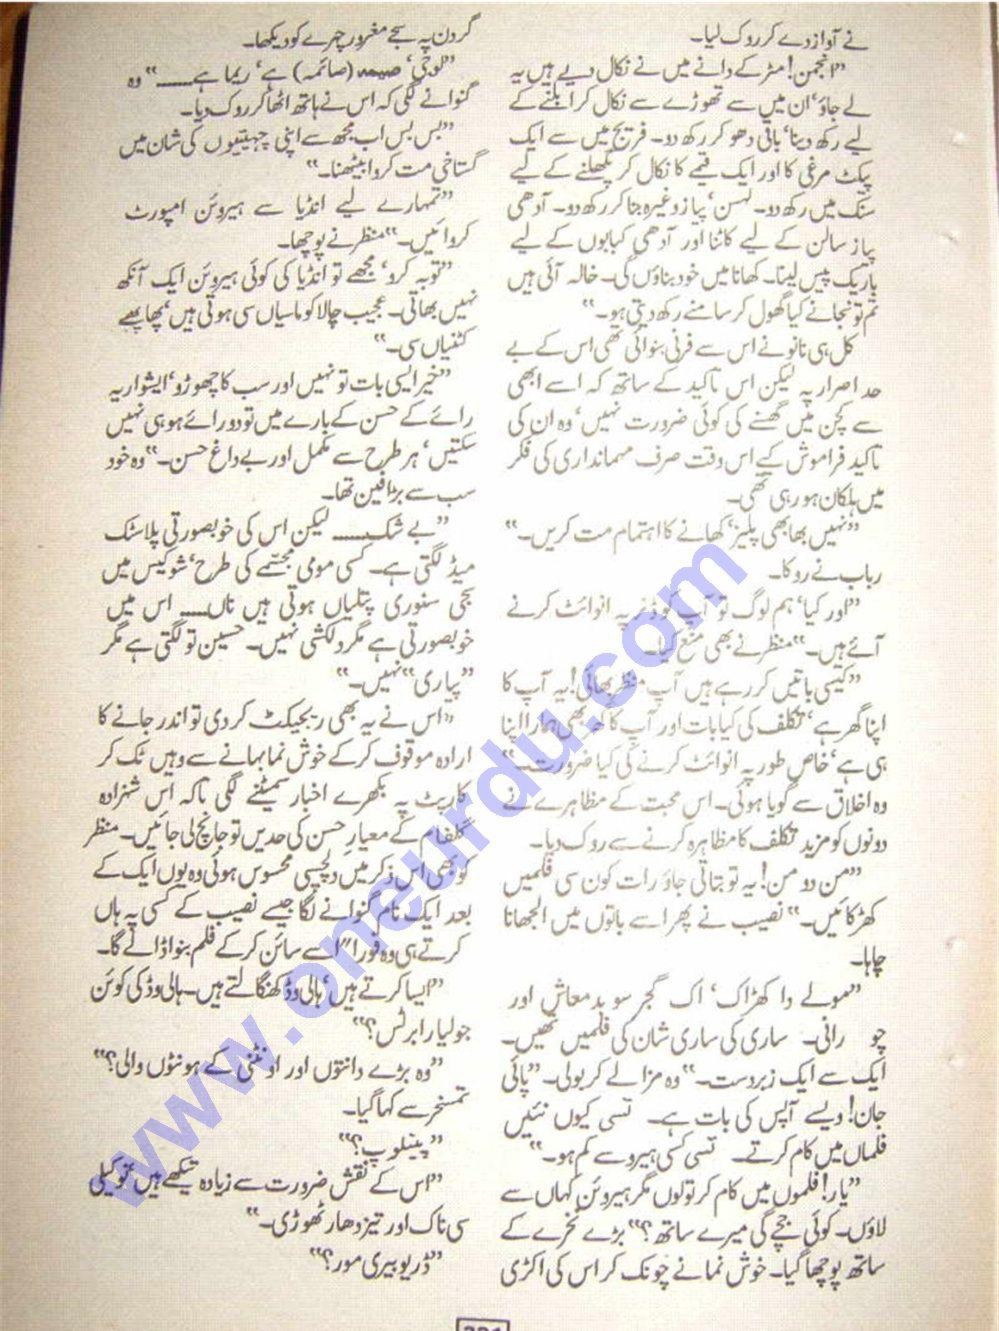 نے آواز دے کر روک لیا۔
"انجمن! مٹر کے دانے میں نے نکال دیے ہیں یہ
لے جاؤ' ان میں سے تھوڑے سے نکال کر ابلنے کے
لیے رکھ دینا' باقی دھو کر رکھ دو۔ فریج میں سے ایک
پیکٹ مرغی کا اور ایک قیمے کا نکال کر پگھلنے کے لیے
سنک میں رکھ دو۔ لہسن' پیاز وغیرہ بنا کر رکھ دو۔ آدھی
پیاز سالن کے لیے کاٹنا اور آدھی کبابوں کے لیے
باریک پیس لینا۔ کھانا میں خود بناؤں گی۔ خالہ آئی ہیں
تم تو نجانے کیا گھول کر سامنے رکھ دیتی ہو۔"
کل ہی نانو نے اس سے فرنی بنوائی تھی اس کے بے
حد اصرار پہ لیکن اس تاکید کے ساتھ کہ اسے ابھی
سے کچن میں گھسنے کی کوئی ضرورت نہیں' وہ ان کی
تاکید فراموش کیے اس وقت صرف مہمانداری کی فکر
میں ہلکان ہو رہی تھی۔
"نہیں بھابھی پلیز' کھانے کا اہتمام مت کریں۔"
رباب نے روکا۔
"اور کیا' ہم لوگ تو آپ کو ڈنر پہ انوائٹ کرنے
آئے ہیں۔" منظر نے بھی منع کیا۔
"کیسی باتیں کر رہے ہیں آپ منظر بھائی! یہ آپ کا
اپنا گھر ہے' تکلف کی کیا بات اور آپ کا گھر بھی ہمارا اپنا
ہی ہے' خاص طور پہ انوائٹ کرنے کی کیا ضرورت۔"
وہ اخلاق سے گویا ہوئی۔ اس محبت کے مظاہرے نے
دونوں کو مزید تکلف کا مظاہرہ کرنے سے روک دیا۔
"من دو من! یہ تو بتاتی جاؤ رات کون سی فلمیں
کھڑکائیں۔" نصیب نے پھر اسے باتوں میں الجھانا
چاہا۔
"مولے دا کھڑاک' اک گجر سو بدمعاش اور
چو رانی۔ ساری کی ساری شان کی فلمیں تھیں۔
ایک سے ایک زبردست۔" وہ مزا لے کر بولی۔ "پائی
جان! ویسے آپس کی بات ہے۔ تسی کیوں نئیں
فلماں میں کام کرتے۔ تسی کسی ہیرو سے کم ہو۔"
"یار! فلموں میں کام کر تو لوں مگر ہیروئن کہاں سے
لاؤں۔ کوئی جچے گی میرے ساتھ؟" بڑے نخرے کے
ساتھ پوچھا گیا۔ خوش نما نے چونک کر اس کی اکڑی
گردن پہ سجے مغرور چہرے کو دیکھا۔
"لو جی' صیمہ (صائمہ) ہے' ریما ہے ــــــ" وہ
گنوانے لگی کہ اس نے ہاتھ اٹھا کر روک دیا۔
"بس بس اب مجھ سے اپنی چہیتیوں کی شان میں
گستاخی مت کروا بیٹھنا۔"
"تمہارے لیے انڈیا سے ہیروئن امپورٹ
کروائیں۔" منظر نے پوچھا۔
"توبہ کرو' مجھے تو انڈیا کی کوئی ہیروئن ایک آنکھ
نہیں بھاتی۔ عجیب چالاکو ماسیاں سی ہوتی ہیں' پھاپھے
کٹنیاں سی۔"
"خیر ایسی بات تو نہیں اور سب کا چھوڑو' ایشواریہ
رائے کے حسن کے بارے میں تو دو رائے ہو ہی نہیں
سکتیں' ہر طرح سے مکمل اور بے داغ حسن۔" وہ خود
سب سے بڑا فین تھا۔
"بے شک ــــــ لیکن اس کی خوبصورتی پلاسٹک
میڈ لگتی ہے۔ کسی مومی مجسّمے کی طرح' شوکیس میں
سجی سنوری پتلیاں ہوتی ہیں ناں ــــــ اس میں
خوبصورتی ہے مگر دلکشی نہیں۔ حسین تو لگتی ہے مگر
"پیاری" نہیں۔"
"اس نے یہ بھی ریجیکٹ کر دی تو اندر جانے کا
ارادہ موقوف کر کے خوش نما بہانے سے وہیں ٹک کر
کارپٹ پہ بکھرے اخبار سمیٹنے لگی تاکہ اس شہزادہ
گلفام کے معیارِ حسن کی حدیں تو جانچ لی جائیں۔ منظر
کو بھی اس ذکر میں دلچسپی محسوس ہوئی وہ یوں ایک کے
بعد ایک نام گنوانے لگا جیسے نصیب کے کسی پہ ہاں
کرتے ہی وہ فوراً" اسے سائن کر کے فلم بنوا ڈالے گا۔
"ایسا کرتے ہیں' ہالی وڈ کھنگالتے ہیں۔ ہالی وڈ کی کوئن
جولیا رابرٹس؟"
"وہ بڑے دانتوں اور اونٹنی کے ہونٹوں والی؟"
تمسخر سے کہا گیا۔
"پینیلوپ؟"
"اس کے نقش ضرورت سے زیادہ تیکھے ہیں' نوکیلی
سی ناک اور تیز دھار ٹھوڑی۔"
"ڈریو بیری مور؟"
www.oneurdu.com